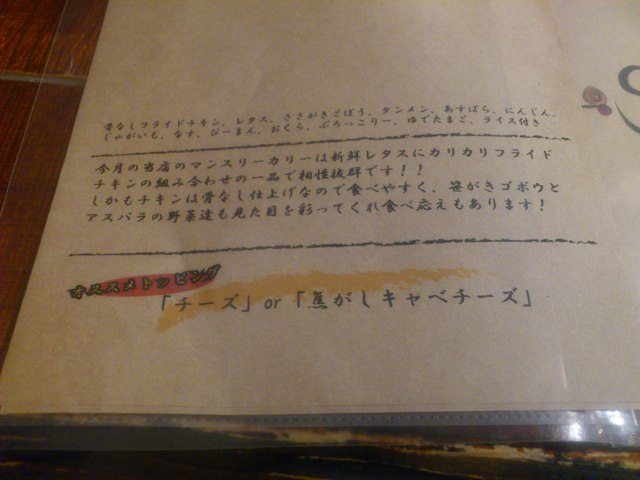 骨なしフライドチキン、レタス、ささがきごぼう、タンメン、あすぱら、にんじん、
じゃがいも、なす、ぴーまん、おくら、ぶろっこりー、ゆでたまご、ライス付き
今月の当店のマンスリーカリーは新鮮レタスにカリカリフライド
チキンの組み合わせの一品で相性抜群です！！
しかもチキンは骨なし仕上げなので食べやすく、笹がきゴボウと
アスパラの野菜達も見た目を彩ってくれ食べ応えもあります！
オススメトッピング
「チーズ」or「焦がしキャベチーズ」